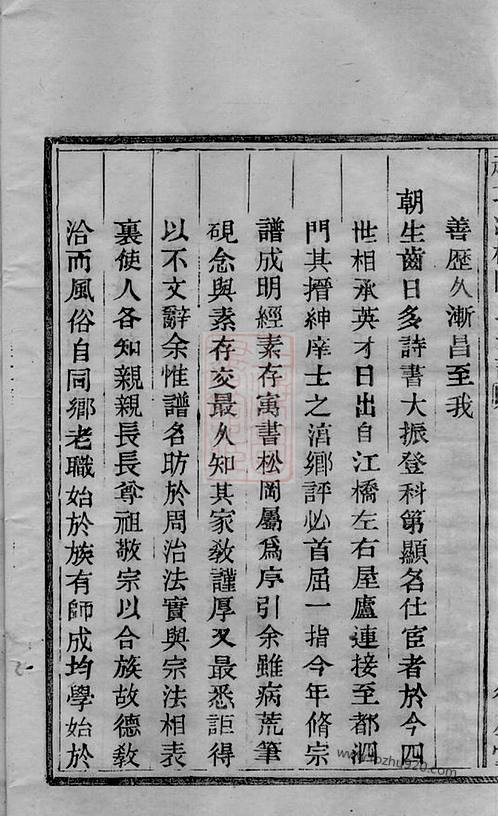 善歷久漸昌至我
朝生齒日多詩書大振登科第顯名仕宦者於今四
世相承英才日出自江橋左右屋廬連接至都泗
門其搢紳庠士之滀鄉評必首屈一指今年脩宗
譜成明經素存寓書松岡屬爲序引余雖病荒筆
硯念與素存交最久知其家敎謹厚又最悉詎得
以不文辭余惟譜名昉於周治法實與宗法相表
裏使人各知親親長長尊祖敬宗以合族故德敎
洽而風俗自同鄉老職始於族有師成均學始於
www.fozhu920.com